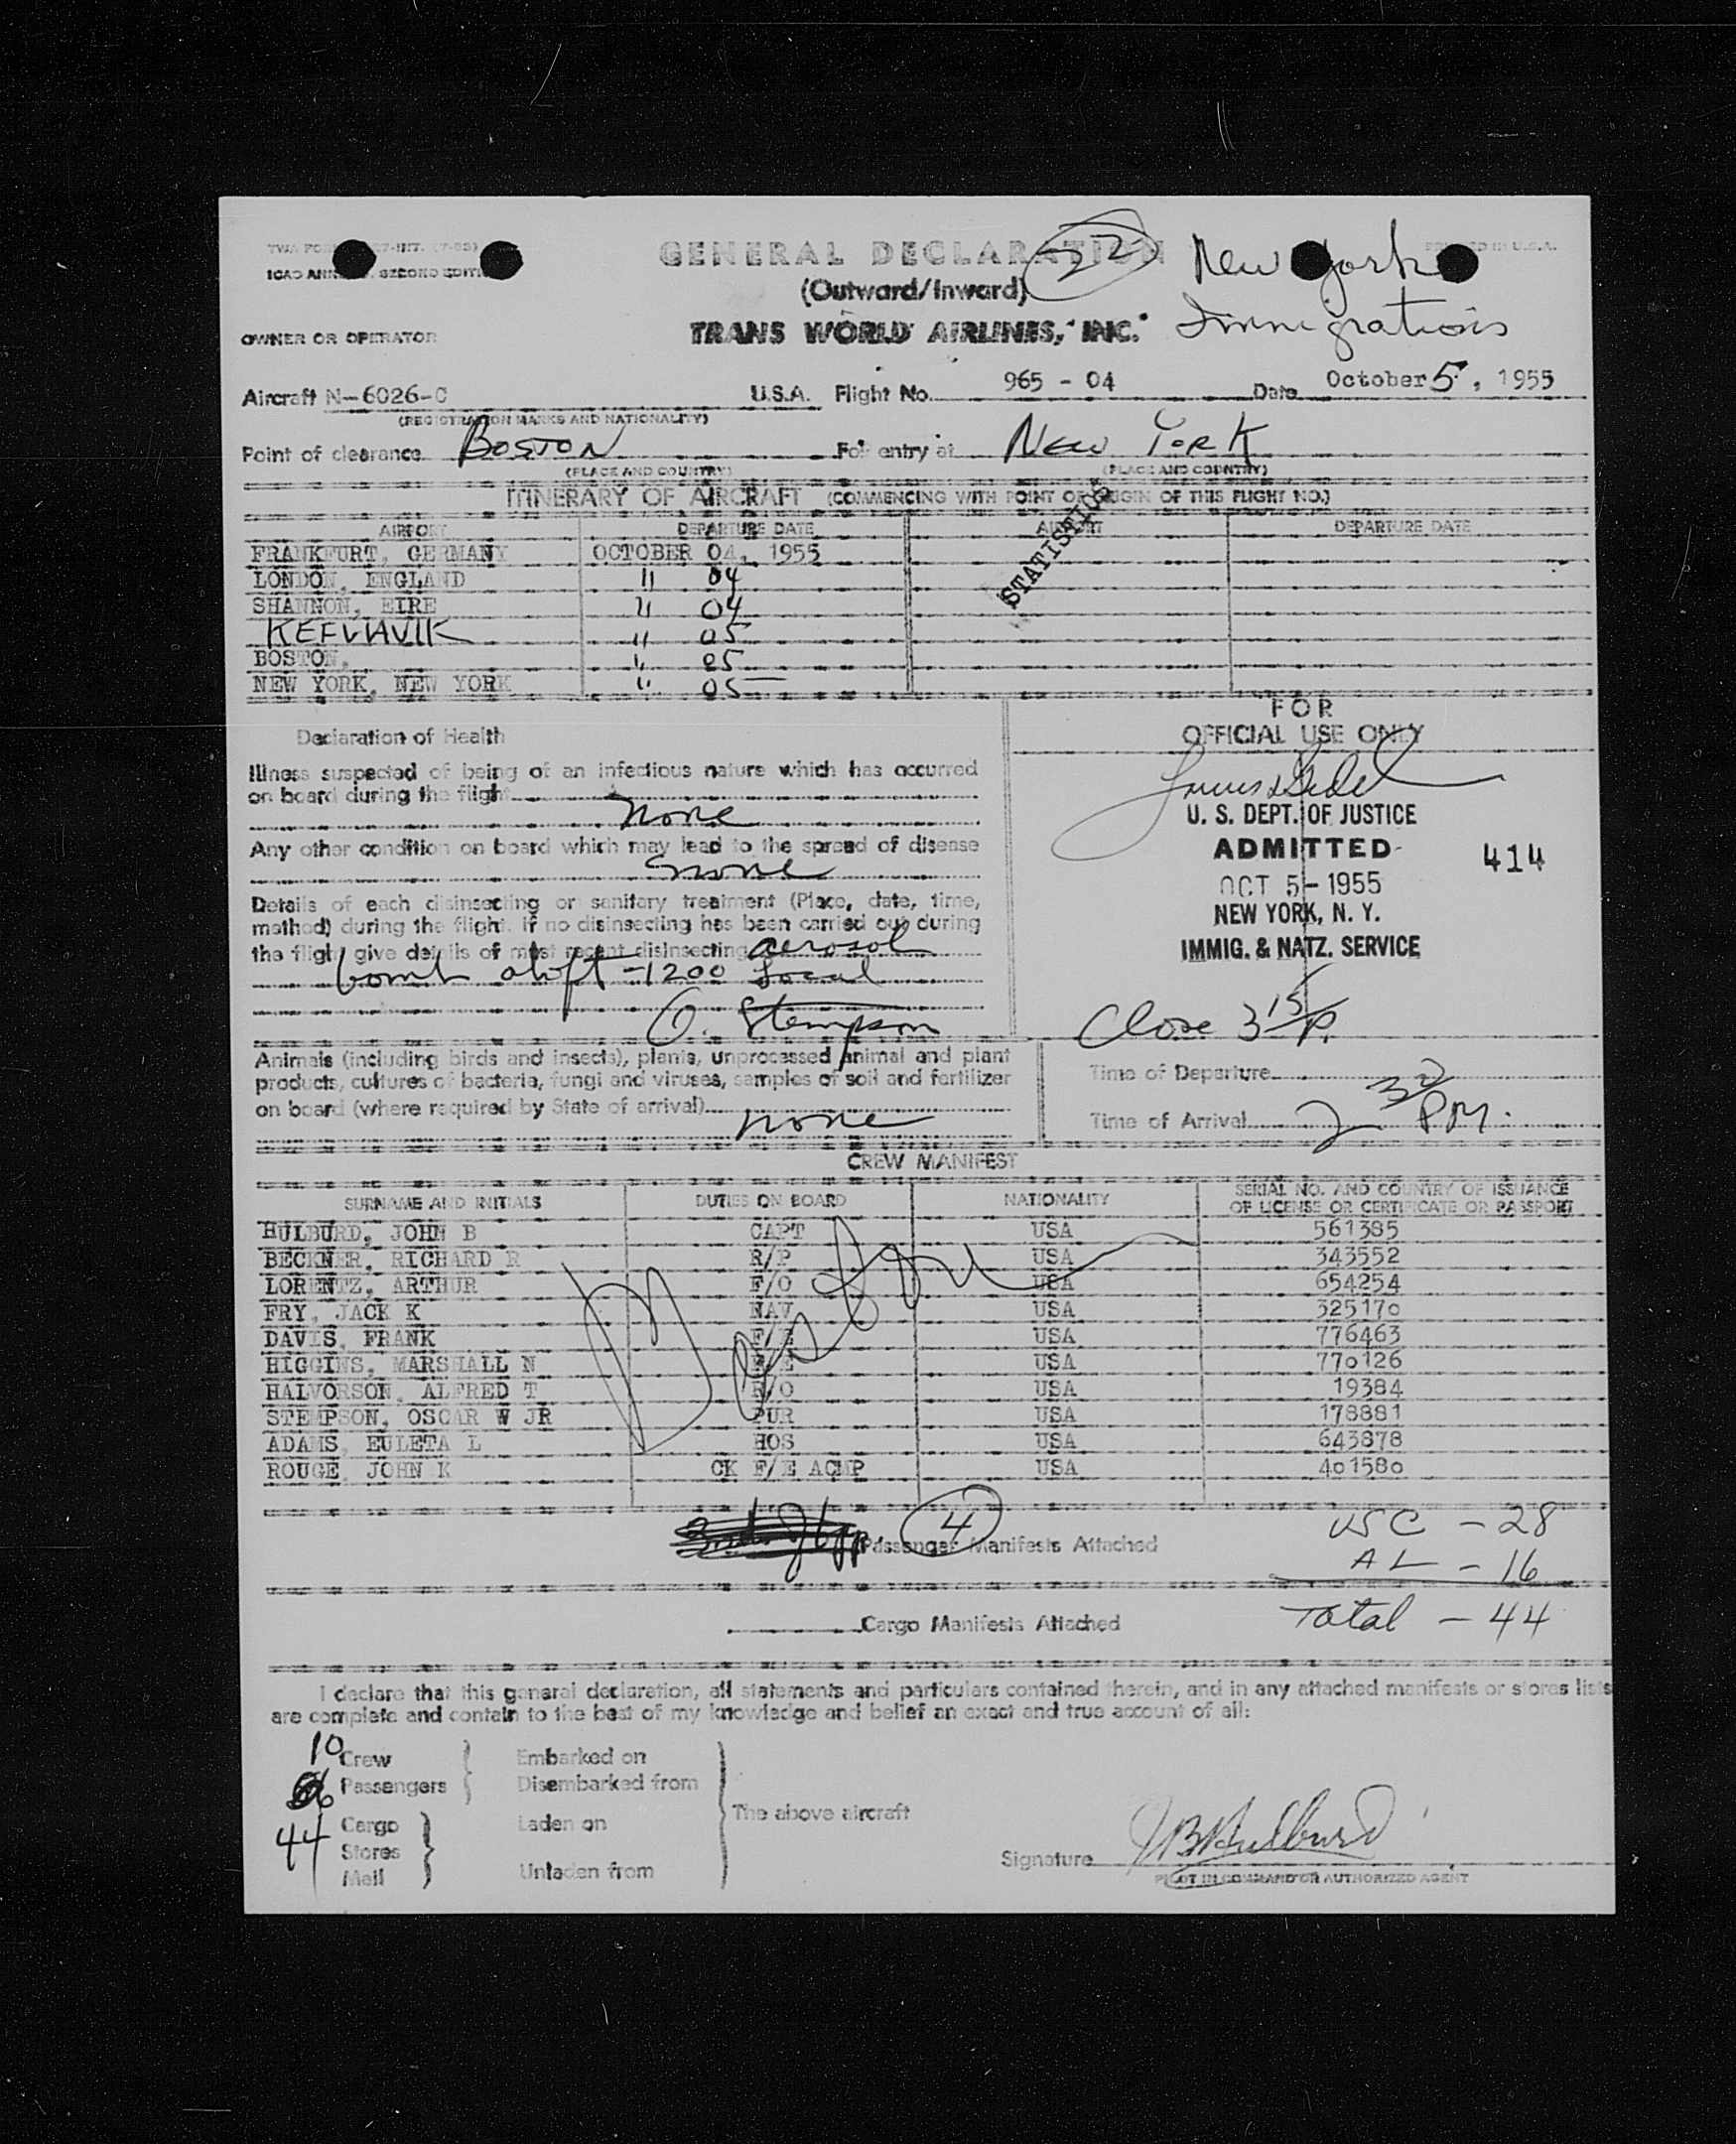 GENERAL DECLARATION
22
New York
Immigration
ICAO ANN SECOND EDITI
(Outward/Inward)
OWNER OR OPERATOR
TRANS WORLD AIRLINES, INC.
Aircraft N-6026-C U.S.A. Flight No. 965 - 04 Date October 5, 1955
(REGISTRATION MARKS AND NATIONALITY)
Point of clearance BOSTON For entry at NEW YORK
(PLACE AND COUNTRY) (PLACE AND COUNTRY)
ITINERARY OF AIRCRAFT (COMMENCING WITH POINT OF ORIGIN OF THIS FLIGHT NO.)
STATISTICS
AIRPORT DEPARTURE DATE AIRPORT DEPARTURE DATE
FRANKFURT, GERMANY OCTOBER 04, 1955
LONDON, ENGLAND " 04
SHANNON, EIRE " 04
KEFLAVIK " 05
BOSTON, " 05
NEW YORK, NEW YORK " 05
Declaration of Health
Illness suspected of being of an infectious nature which has occurred
on board during the flight
None
Any other condition on board which may lead to the spread of disease
none
Details of each disinsecting or sanitary treatment (Place, date, time,
method) during the flight. If no disinsecting has been carried out during
the flight give details of most recent disinsecting aerosol
bomb aloft - 1200 Local
O. Stempson
FOR
OFFICIAL USE ONLY
U. S. DEPT. OF JUSTICE
ADMITTED 414
OCT 5 - 1955
NEW YORK, N. Y.
IMMIG. & NATZ. SERVICE
Close 3 15/P.
Animals (including birds and insects), plants, unprocessed animal and plant
products, cultures of bacteria, fungi and viruses, samples of soil and fertilizer
on board (where required by State of arrival)
none
Time of Departure
Time of Arrival 2 32 PM.
CREW MANIFEST
SURNAME AND INITIALS DUTIES ON BOARD NATIONALITY SERIAL NO. AND COUNTRY OF ISSUANCE
OF LICENSE OR CERTIFICATE OR PASSPORT
HULBURD, JOHN B CAPT USA 561385
BECKNER, RICHARD R R/P USA 343552
LORENTZ, ARTHUR F/O USA 654254
FRY, JACK K NAV USA 325170
DAVIS, FRANK F/E USA 776463
HIGGINS, MARSHALL N F/E USA 770126
HALVORSON, ALFRED T R/O USA 19384
STEMPSON, OSCAR W JR PUR USA 178881
ADAMS, EULETA L HOS USA 643878
ROUGE, JOHN K CK F/E ACMP USA 401580
4 Passenger Manifests Attached
USC - 28
AL - 16
Total - 44
Cargo Manifests Attached
I declare that this general declaration, all statements and particulars contained therein, and in any attached manifests or stores lists
are complete and contain to the best of my knowledge and belief an exact and true account of all:
10 Crew Embarked on
Passengers Disembarked from
44 Cargo Laden on
Stores
Mail Unladen from
The above aircraft
Signature JB Hulburd
PILOT IN COMMAND OR AUTHORIZED AGENT